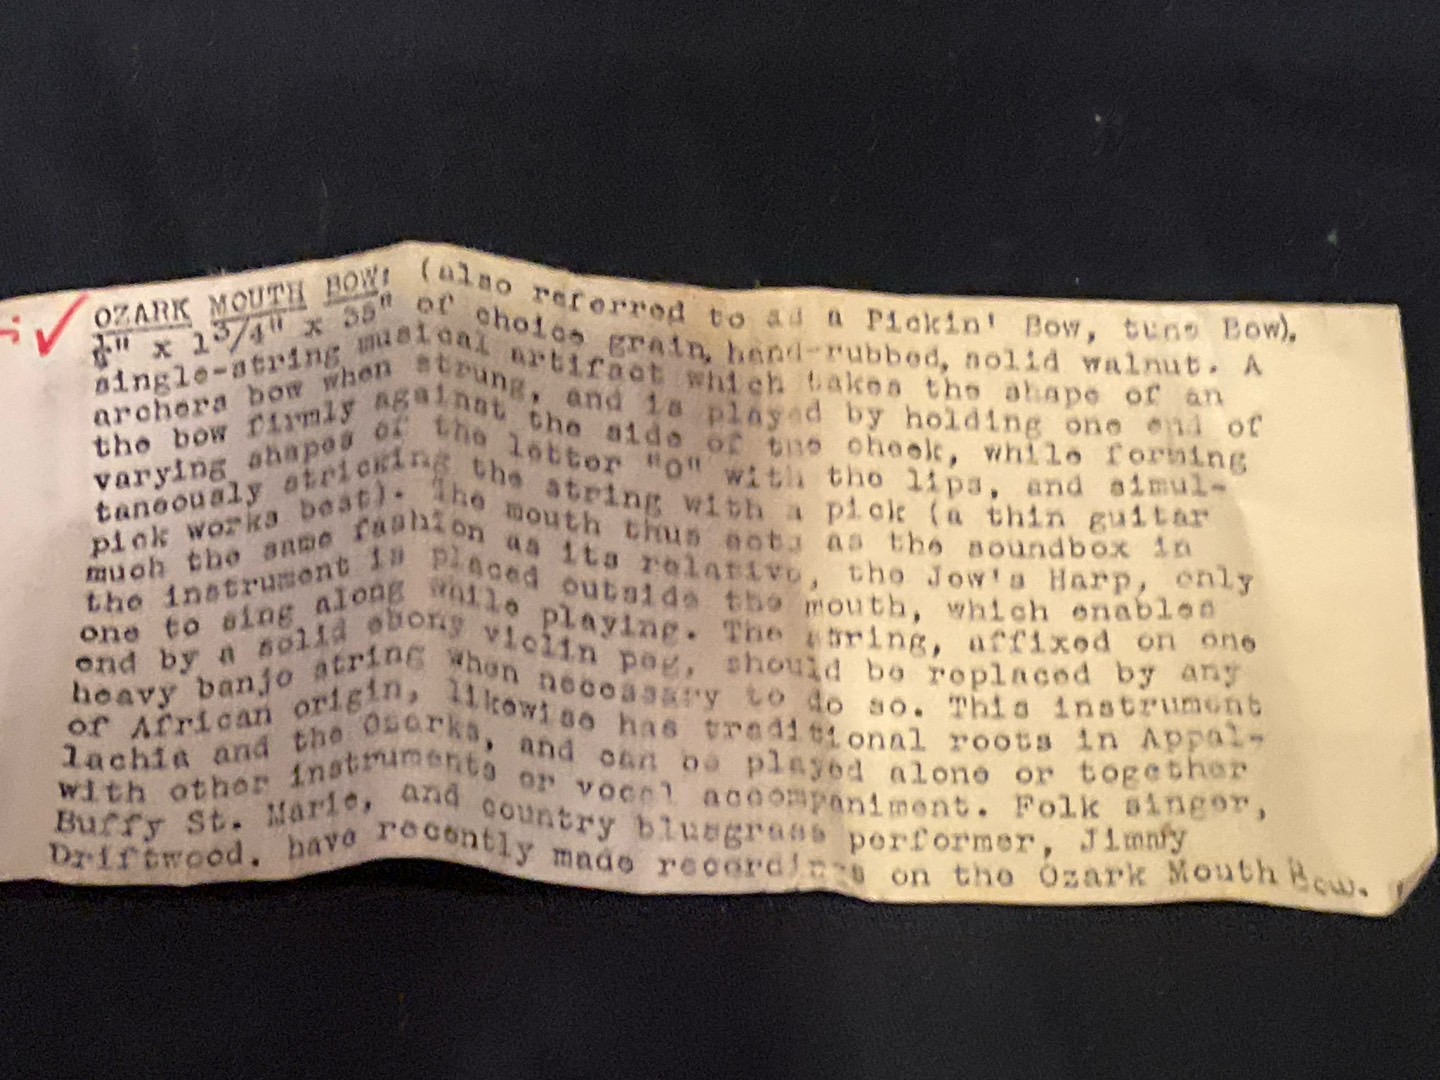 OZARK MOUTH BOW: (also referred to ad a Pickin' Bow, tune Bow).
" x 1 3/4" x 35" of choice grain, hand-rubbed, solid walnut. A
single-string musical artifact which takes the shape of an
archers bow when strung, and is played by holding one end of
the bow firmly against the side of the cheek, while forming
varying shapes of the letter "O" with the lips, and simul-
taneously stricking the string with a pick (a thin guitar
pick works best). The mouth thus acts as the soundbox in
much the same fashion as its relative, the Jew's Harp, only
the instrument is placed outside the mouth, which enables
one to sing along while playing. The string, affixed on one
end by a solid ebony violin peg, should be replaced by any
heavy banjo string when necessary to do so. This instrument
of African origin, likewise has traditional roots in Appal-
lachia and the Ozarks, and can be played alone or together
with other instruments or vocal accompaniment. Folk singer,
Buffy St. Marie, and country bluegrass performer, Jimmy
Driftwood. have recently made recordings on the Ozark Mouth Bow.